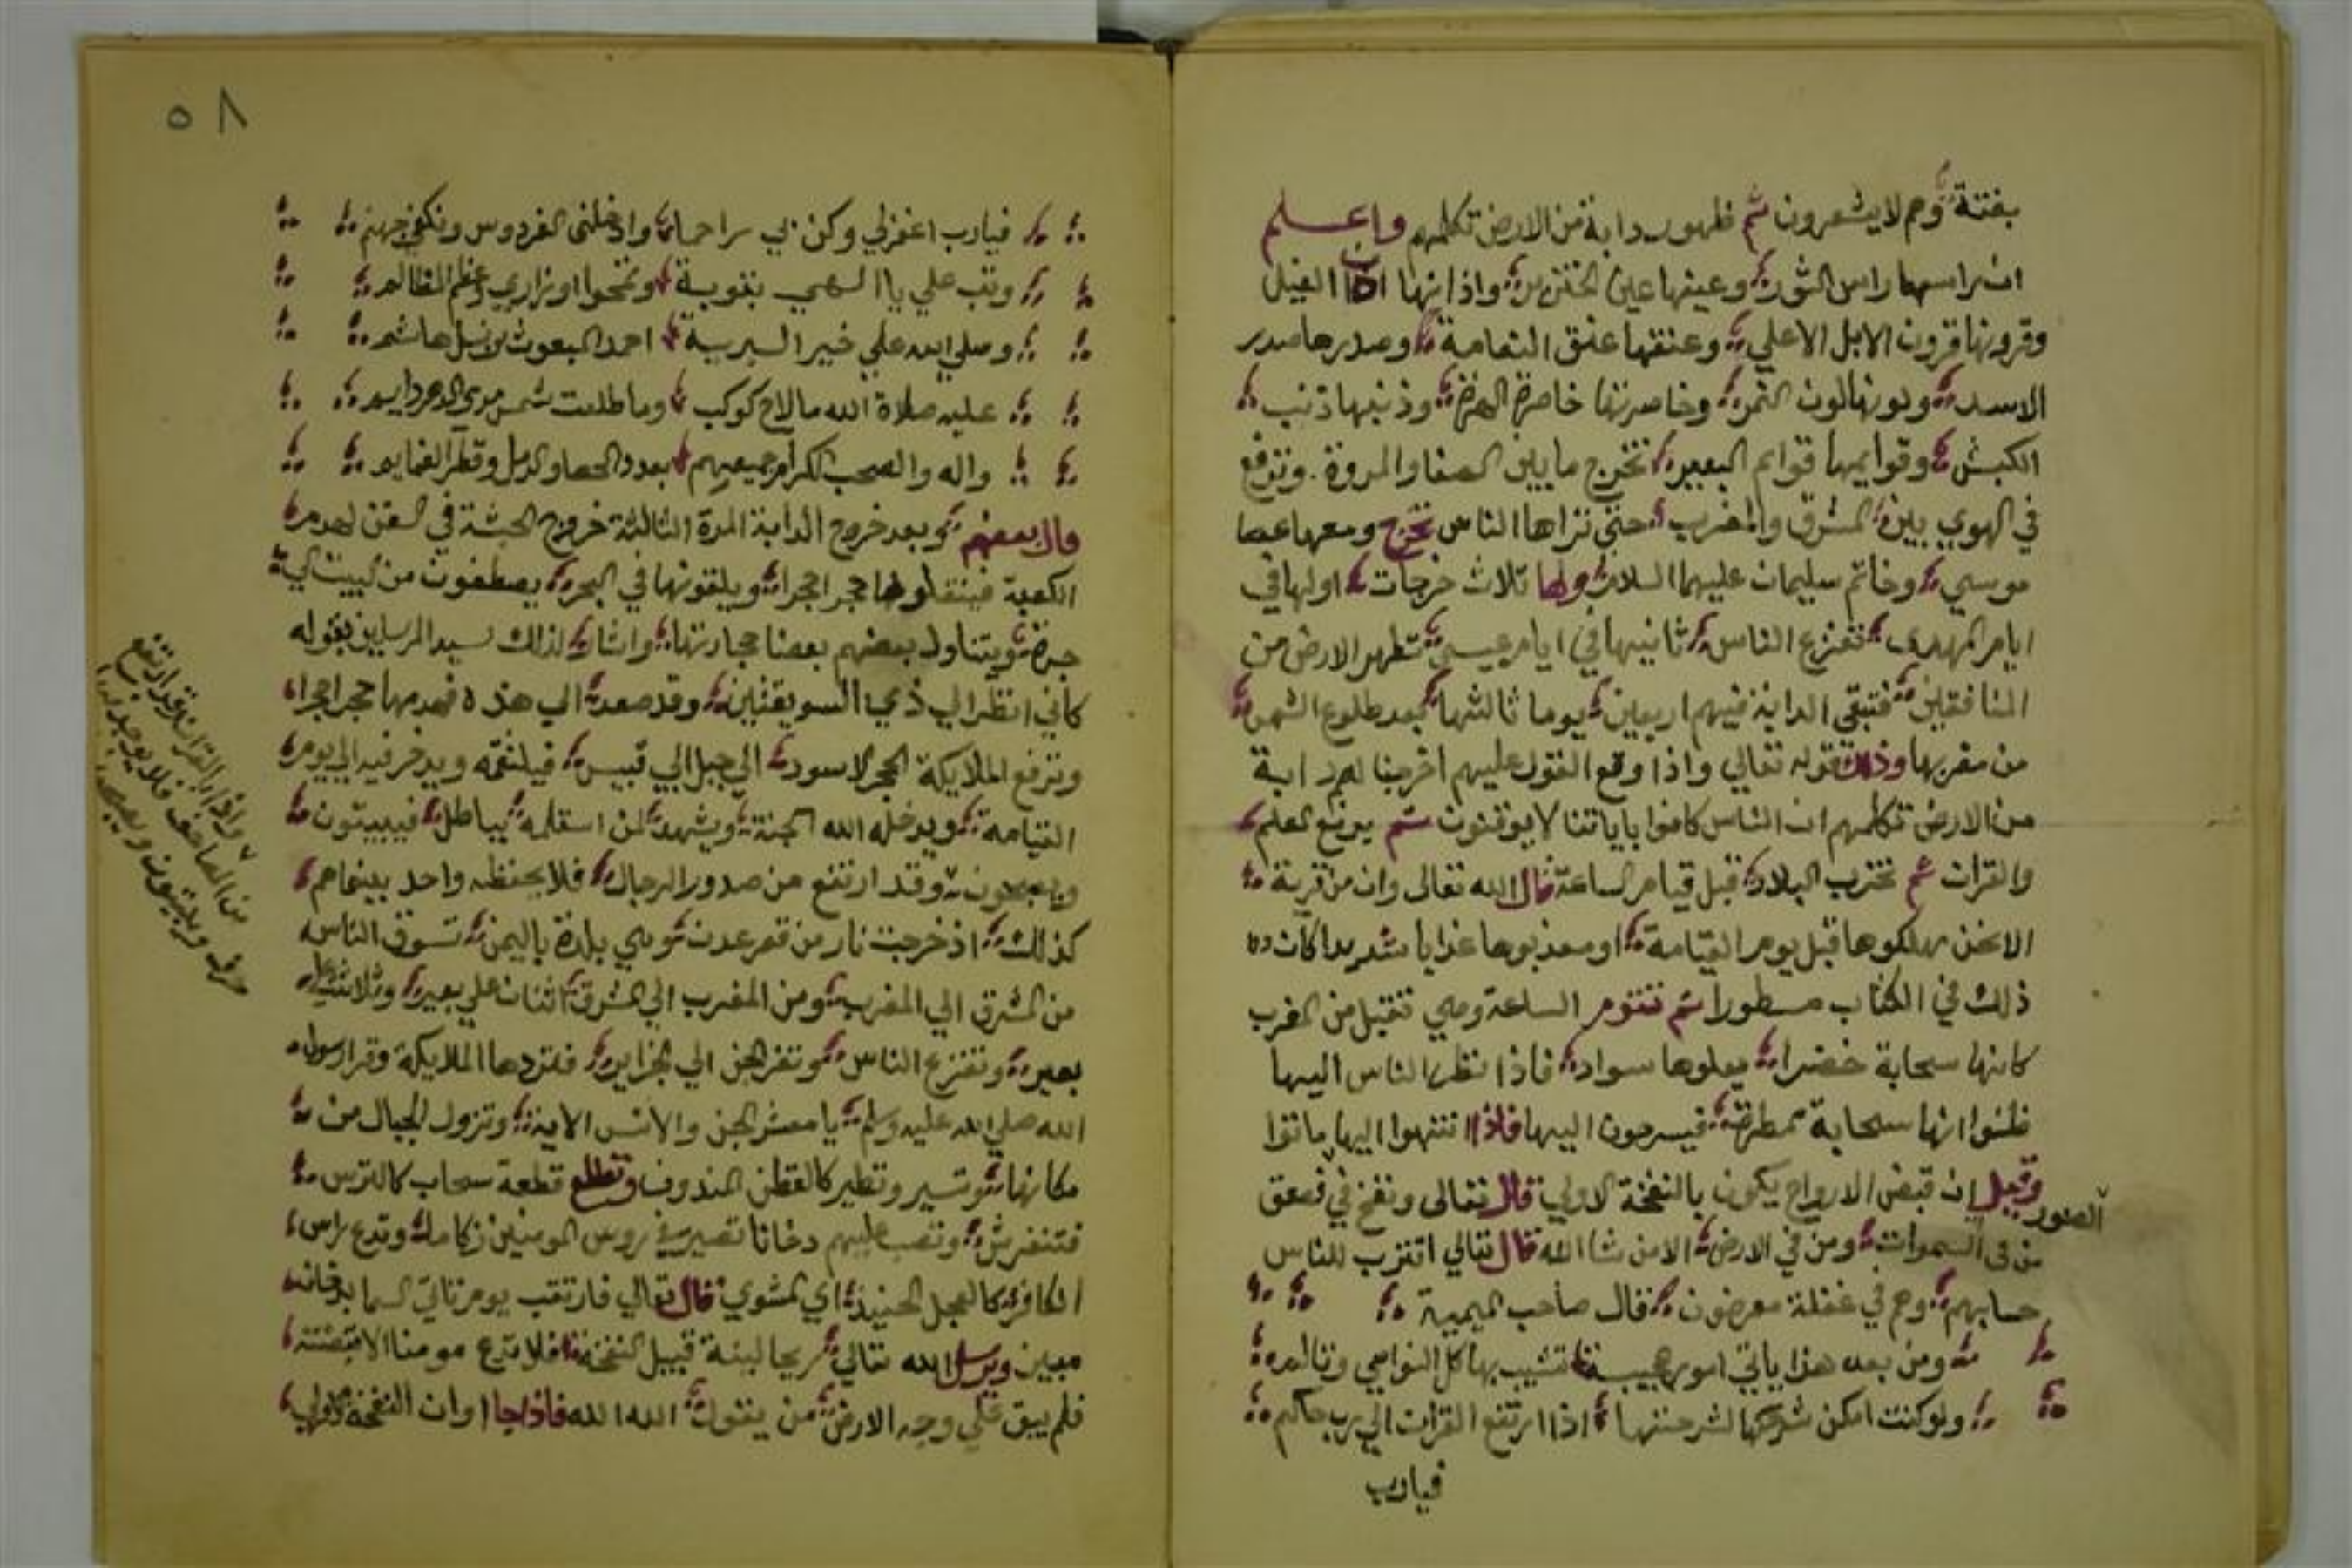 بغتة وهم لا يشعرون ثم ظهور دابة من الارض تكلمهم واعلم
ان راسها راس الثور وعينها عين الخنزير واذانها اذان الفيل
وقرونها قرون الابل الاعلي وعنقها عنق النعامة وصدرها صدر
الاسد ولونها لون النمر وخاصرتها خاصرة الهرة وذنبها ذنب
الكبش وقوايمها قوايم البعير تخرج ما بين الصفا والمروة وترفع
في الهوي بين المشرق والمغرب حتي تراها الناس تخرج ومعها عصا
موسي وخاتم سليمان عليهما السلام ولها ثلاث خرجات اولها في
ايام المهدي تفزع الناس ثانيها في ايام عيسي تطهر الارض من
المنافقين فتبقي الدابة فيهم اربعين يوما ثالثها بعد طلوع الشمس
من مغربها وذلك قوله تعالي واذا وقع القول عليهم اخرجنا لهم دابة
من الارض تكلمهم ان الناس كانوا باياتنا لا يوقنون ثم يرفع العلم
والقران ثم تخرب البلاد قبل قيام الساعة قال الله تعالى وان من قرية
الا نحن مهلكوها قبل يوم القيامة او معذبوها عذابا شديدا كان
ذلك في الكتاب مسطورا ثم تقوم الساعة وهي تقبل من المغرب
كانها سحابة خضرا يعلوها سواد فاذا نظر الناس اليها
ظنوا انها سحابة ممطرة فيسرعون اليها فاذا انتهوا اليها ماتوا
وقيل ان قبض الارواح يكون بالنفخة الاولي قال تعالى ونفخ في الصور فصعق
من في السموات ومن في الارض الا من شا الله قال تعالي اقترب للناس
حسابهم وهم في غفلة معرضون قال صاحب الميمية
ومن بعد هذا ياتي امور عجيبة تشيب بها كل النواصي وتالم
ولو كنت امكن شرحها لشرحتها اذا ارتفع القران الي رب حاكم
فيارب
٥٨
فيارب اغفرلي وكن بي راحما وادخلني الفردوس ونكفي جهنم
وتب علي يا الهي بتوبة وتمحوا اوزاري وعظم المظالم
وصلي الله علي خير البرية احمد المبعوث من نسل هاشم
عليه صلاة الله ما لاح كوكب وما طلعت شمس مدي الدهر دايم
واله والصحب الكرام جميعهم بعدد الحصا والرمل وقطر الغمايم
قال بعضهم وبعد خروج الدابة المرة الثالثة خروج الحبشة في السفن لهدم
الكعبة فينقلوها حجرا حجرا ويلقونها في البحر يصطفون من البيت الي
جدة ويتناول بعضهم بعضا حجارتها واشار لذلك سيد المرسلين بقوله
كأني انظر الي ذي السويقتين وقد صعد الي هذه فهدمها حجرا حجرا
وترفع الملايكة الحجر الاسود الي جبل ابي قبيس فيلتقمه ويدخر فيه الي يوم
القيامة ويدخله الله الجنة ويشهد لمن استلمه بباطل فيبيتون
ويصبحون وقد ارتفع من صدور الرجال فلا يحفظه واحد بينما هم
كذلك اذ خرجت نار من قعر عدن وهي بلدة باليمن تسوق الناس
من المشرق الي المغرب ومن المغرب الي المشرق اثنان علي بعير وثلاثة علي
بعير وتفزع الناس وتفر الجن الي الجزاير فتردها الملايكة وقرا رسول
الله صلي الله عليه وسلم يا معشر الجن والانس الاية وتزول الجبال من
مكانها وتسير وتطير كالقطن المندوف وتطلع قطعة سحاب كالترس
فتنفرش وتصب عليهم دخانا تصير في روس المومنين زكاما وتدع راس
الكافر كالعجل الحنيذ اي المشوي قال تعالي فارتقب يوم تاتي السما بدخان
مبين ويرسل الله تعالي ريحا لينة قبيل النفخة فلا تدع مومنا الا قبضته
فلم يبق علي وجه الارض من يقول الله الله فاذا جا اوان النفخة الاولي
واذا بالقران قد ارتفع
من المصاحف فلا يوجد